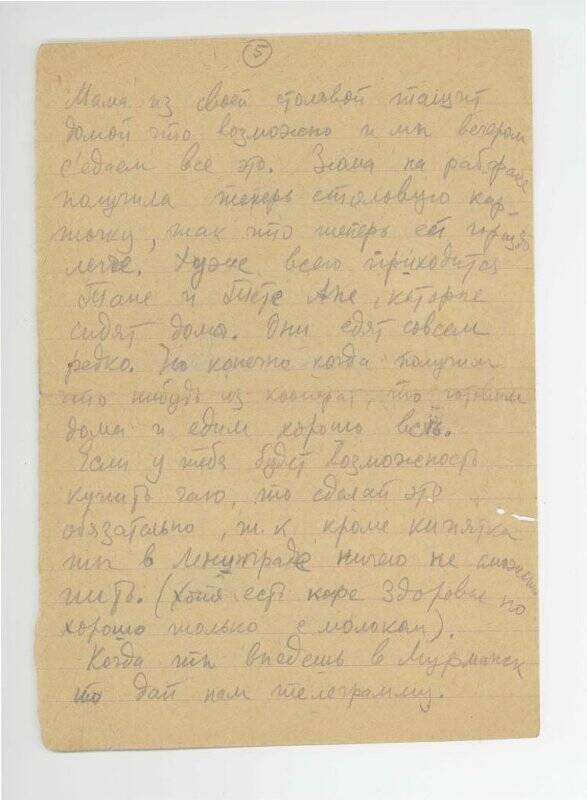 5
Мама из своей столовой тащит
домой что возможно и мы вечером
с'едаем все это. Зюама на рабфаке
получила теперь столовую кар-
точку, так что теперь ей гораздо
легче. Хуже всего приходится
Тане и Тете Ане, которые
сидят дома. Они едят совсем
редко. Но конечно когда получим
что нибудь из кооперат, то готовим
дома и едим хорошо все.
Если у тебя будет возможность
купить чаю, то сделай это
обязательно, т.к. кроме кипятка
ты в Ленинграде ничего не сможешь
пить. (Хотя есть кофе Здоровье но
хорошо только с молоком).
Когда ты в Мурманск
то дай нам телеграмму.